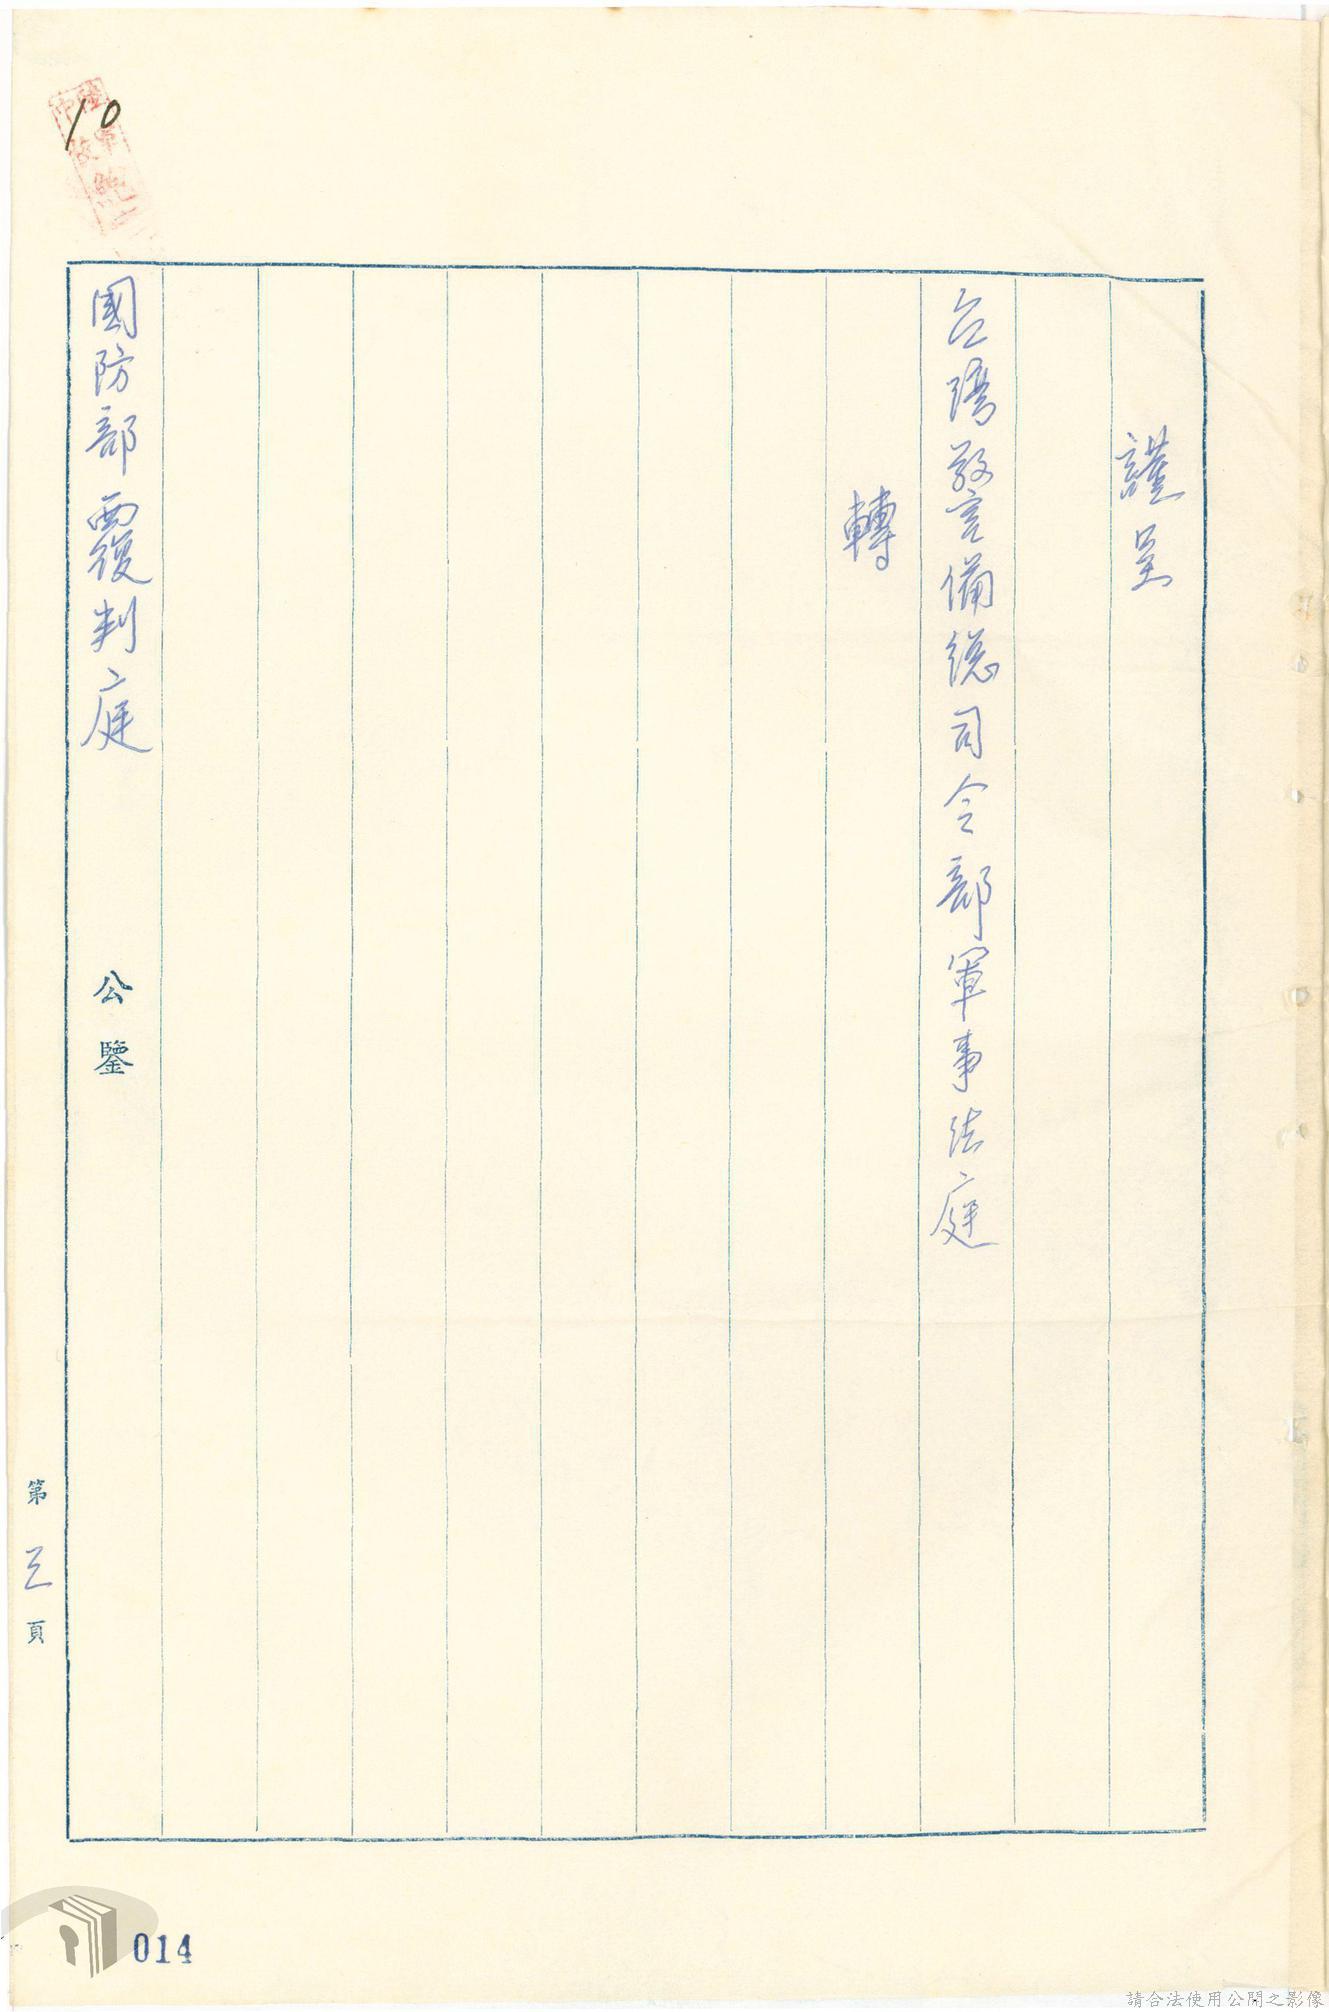 10
謹呈
台灣警備總司令部軍事法庭
轉
國防部覆判庭 公鑒
第三頁
014
請合法使用公開之影像